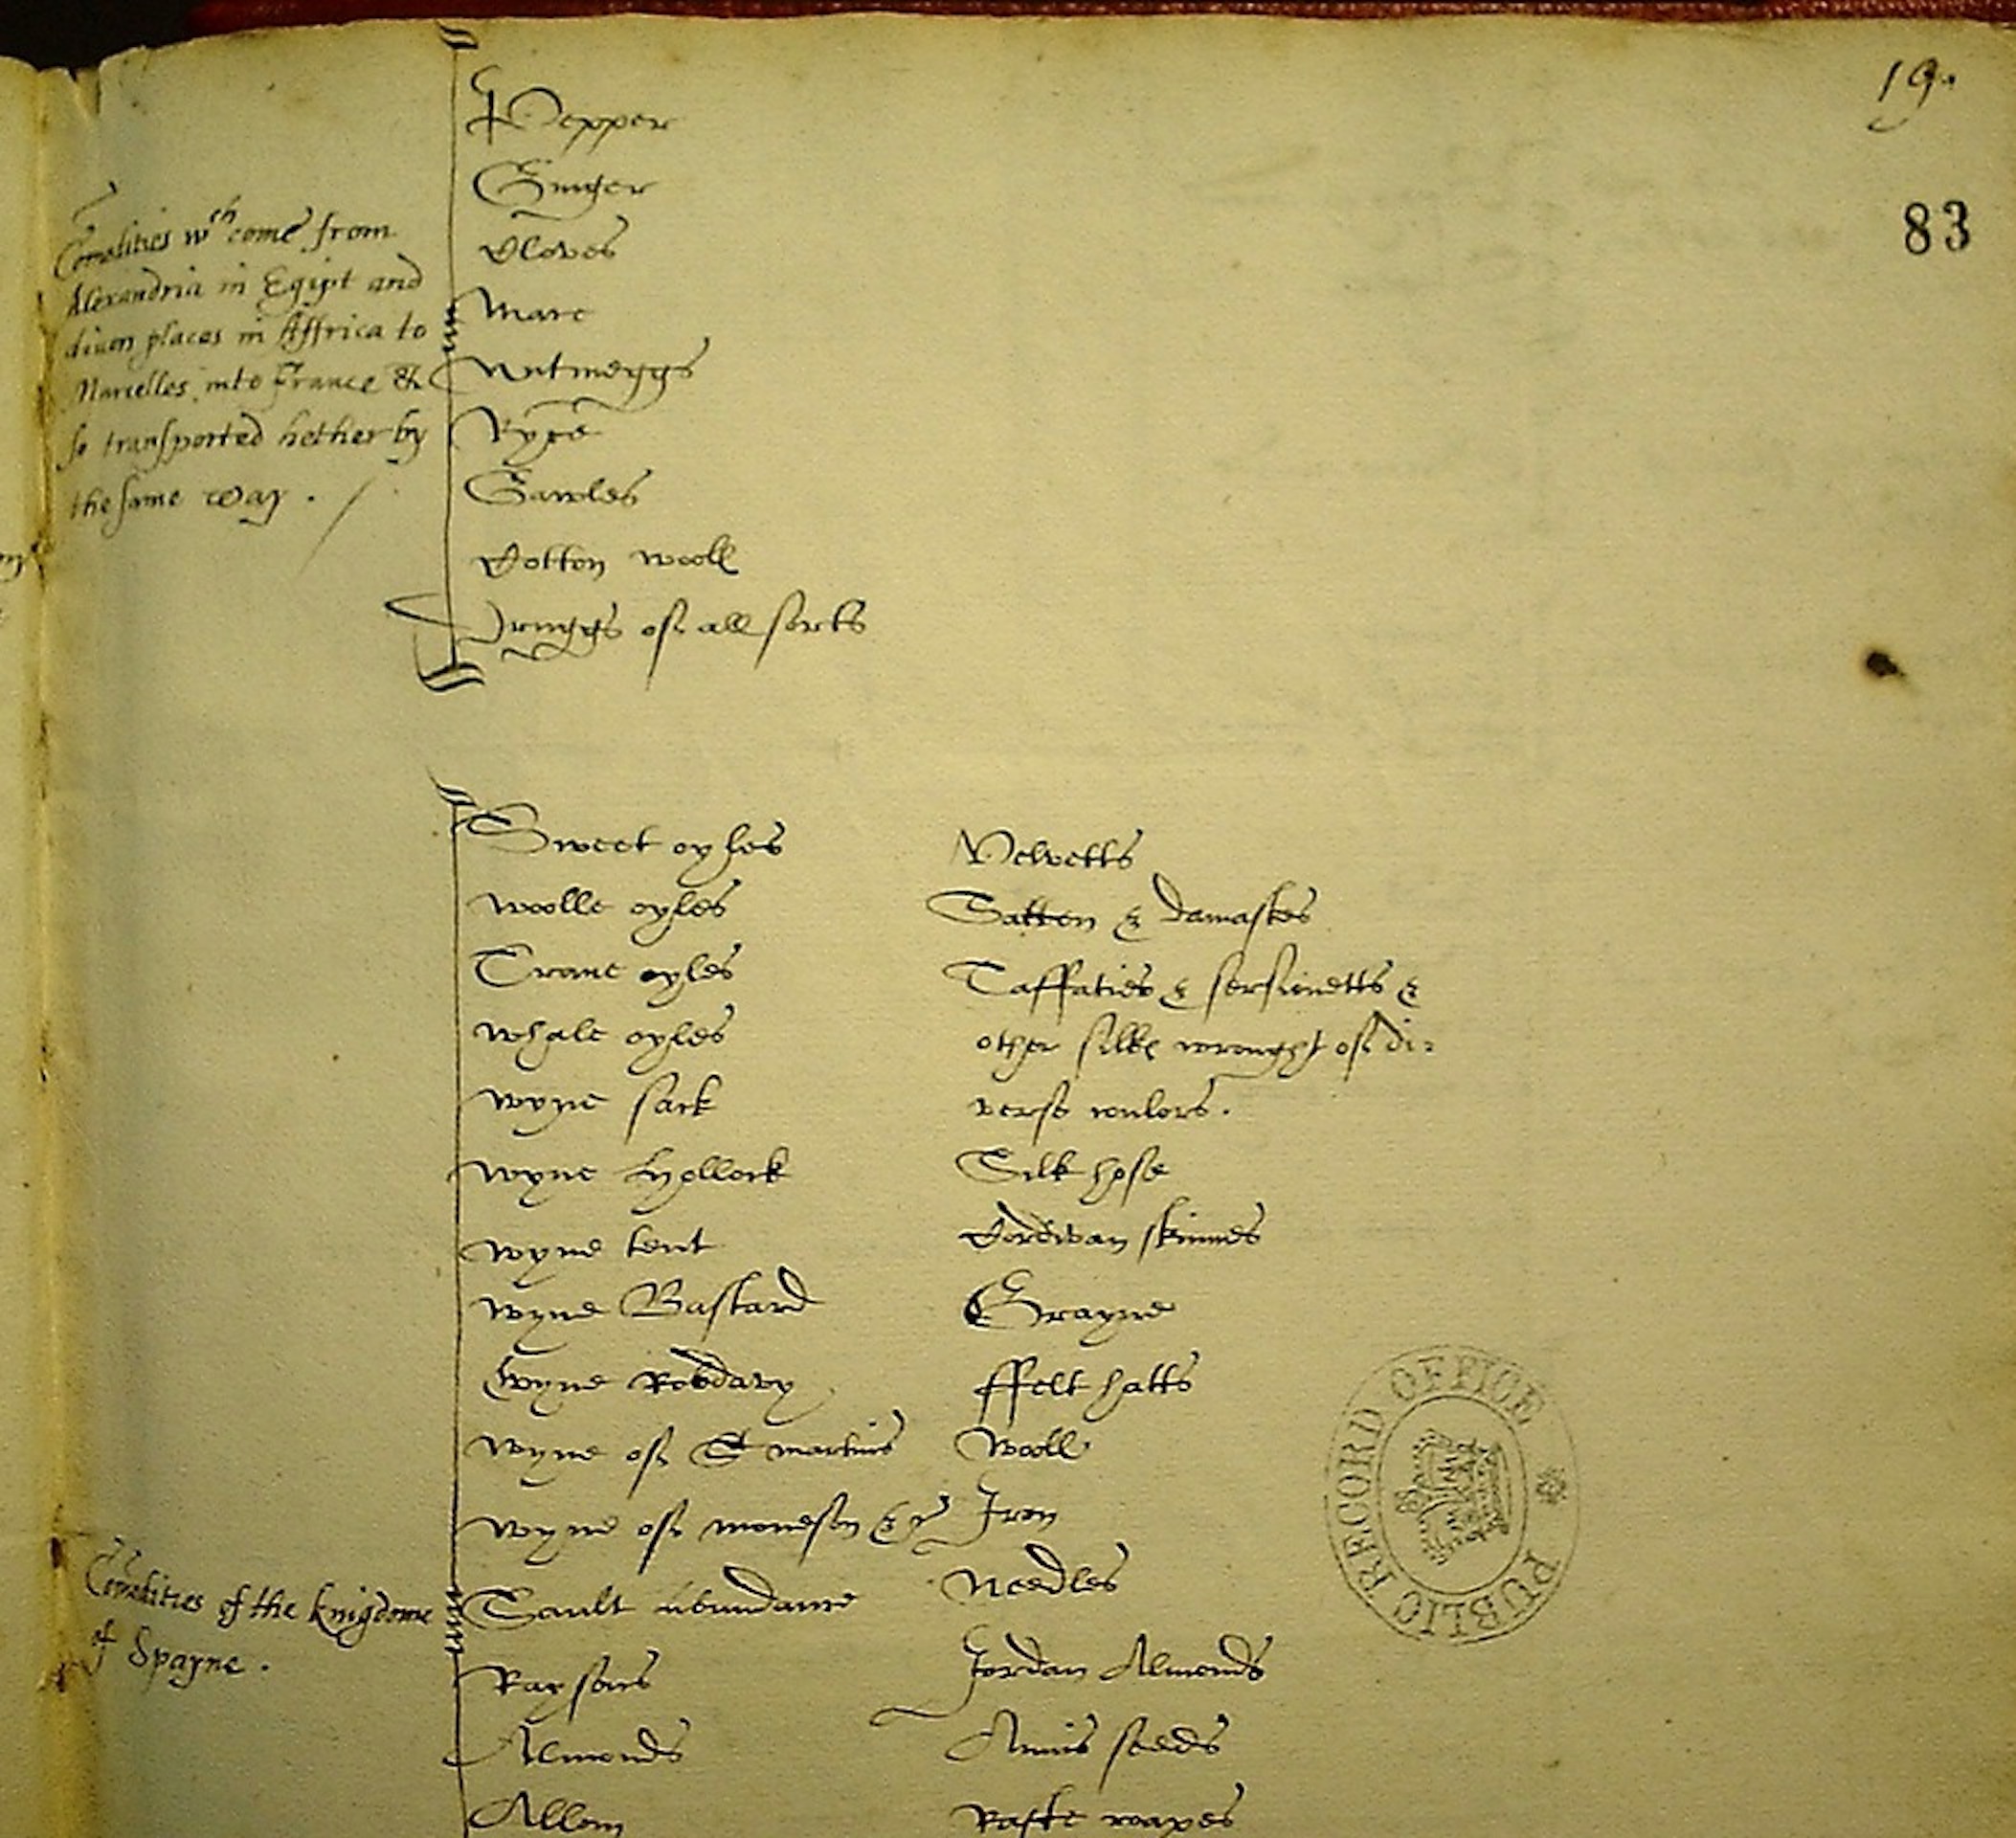 19.
83
Comodities wch come from
Alexandria in Egipt and
divers places in Affrica to
Marcelles into France &
so transported hether by
the same way.
Pepper
Ginger
Cloves
Mace
Nutmeggs
Ryce
Gawles
Cotton wooll
Druggs of all sorts
Comodities of the kingdome
of Spayne.
Sweet oyles
Woolle oyles
Trane oyles
Whale oyles
Wyne sack
Wyne Hollock
Wyne tent
Wyne Bastard
Wyne Robdavy
Wyne of St martins
Wyne of &
Sault abundance
Raysons
Almonds
Allom
Velvetts
Satten & damaskes
Taffaties & sersinetts &
other silke wrought of di=
verse coulors.
Silk hose
Cordwan skinnes
Grayne
ffelt hatts
Wooll
Iron
Needles
Jordan Almonds
Annis seeds
PUBLIC RECORD OFFICE